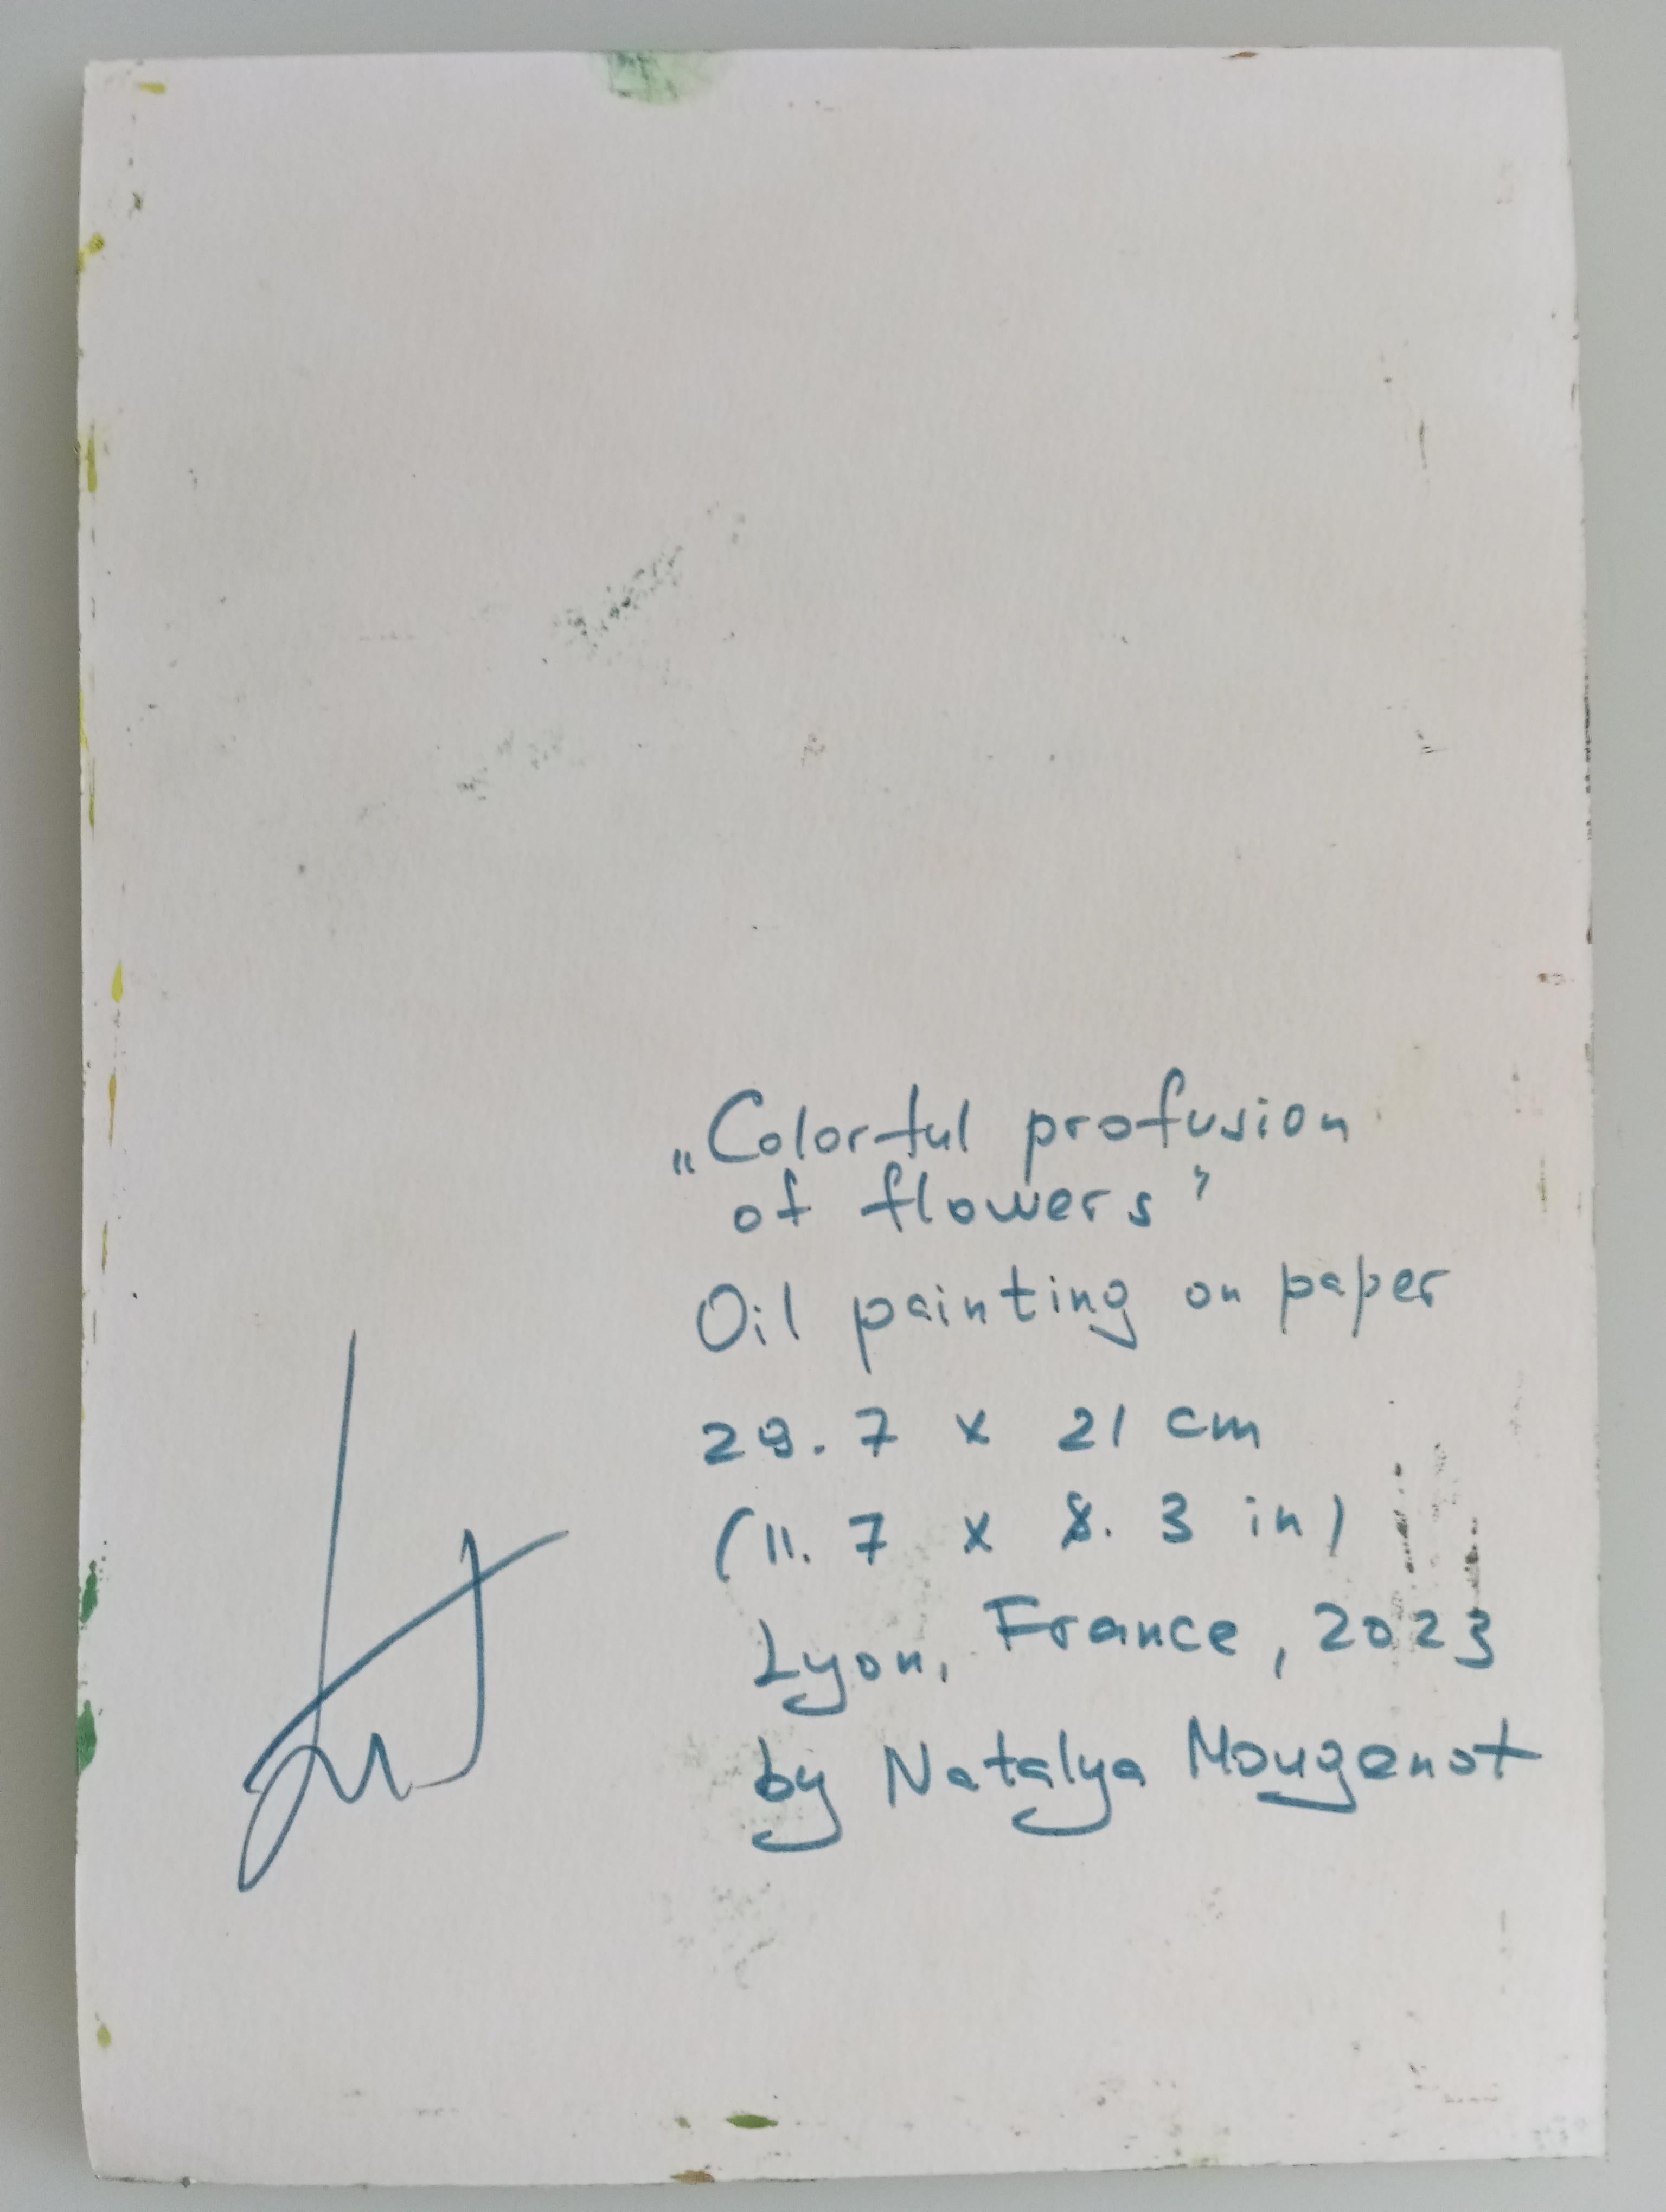 „Colorful profusion
of flowers”
Oil painting on paper
29.7 x 21 cm
(11.7 x 8.3 in)
Lyon, France, 2023
by Natalya Mougenot